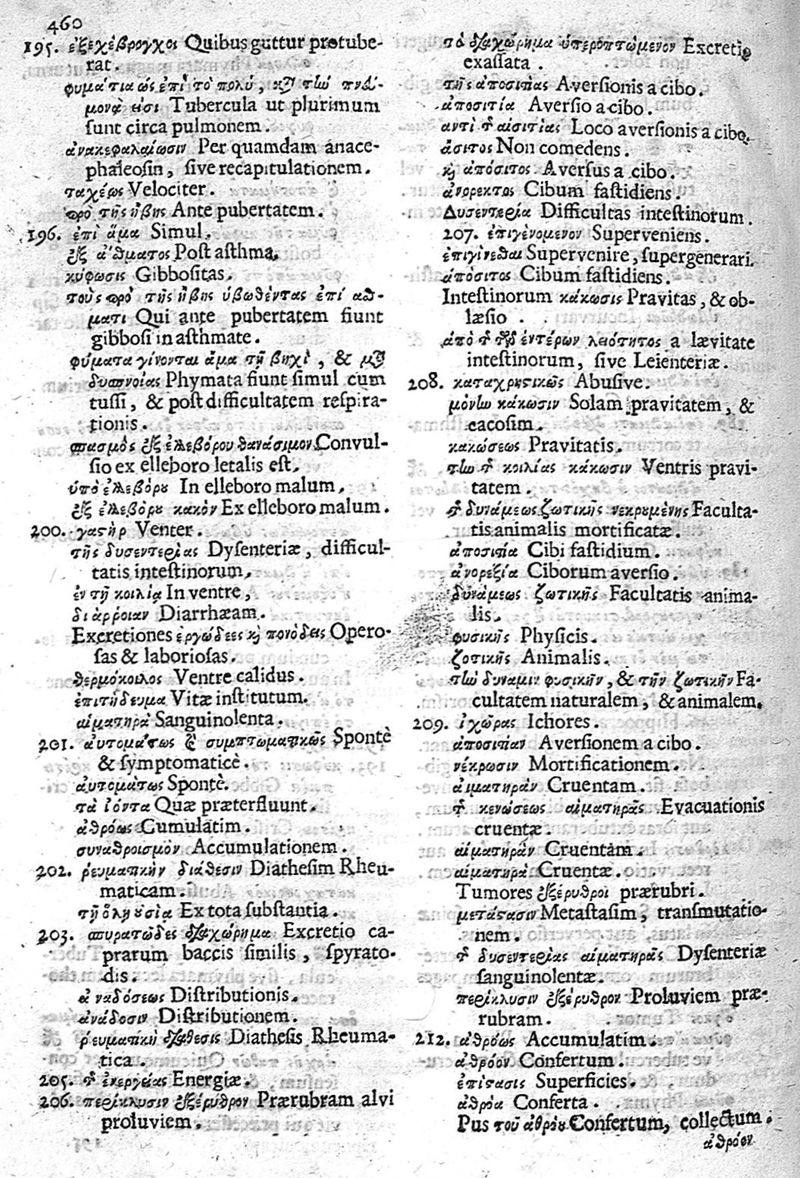 460
195. ἐξεχέβρογχοι Quibus guttur protube-
rat.
φυμάτια ὡς ἐπὶ τὸ πολύ, καὶ τῷ πνεύ-
μονα εἰσι Tubercula ut plurimum
sunt circa pulmonem.
ἀνακεφαλαίωσιν Per quamdam anace-
phaleosin, sive recapitulationem.
ταχέως Velociter.
πρὸ τῆς ἥβης Ante pubertatem.
196. ἐπὶ ἅμα Simul.
ἐξ ἄσθματος Post asthma.
κύφωσις Gibbositas.
τοὺς πρὸ τῆς ἥβης ὑβωθέντας ἐπὶ ασθ-
ματι Qui ante pubertatem fiunt
gibbosi in asthmate.
φύματα γίνονται ἅμα τῇ βηχὶ, & μετὰ
δυσπνοίας Phymata fiunt simul cum
tussi, & post difficultatem respira-
tionis.
σπασμὸς ἐξ ἐλλεβόρου θανάσιμον Convul-
sio ex elleboro letalis est.
ὑπὸ ἐλλεβόρου In elleboro malum.
ἐξ ἐλλεβόρου κακὸν Ex elleboro malum.
200. γαστὴρ Venter.
τῆς δυσεντερίας Dysenteriæ, difficul-
tatis intestinorum.
ἐν τῇ κοιλίᾳ In ventre,
διάρροιαν Diarrhæam.
Excretiones ἐργώδεες καὶ πονώδεις Opero-
sas & laboriosas.
θερμόκοιλος Ventre calidus.
ἐπιτήδευμα Vitæ institutum.
αἱματηρὰ Sanguinolenta.
201. αὐτομάτως & συμπτωματικῶς Spontè
& symptomaticè.
αὐτομάτως Spontè.
τὰ ἰόντα Quæ præterfluunt.
ἀθρόως Cumulatim.
συναθροισμὸν Accumulationem.
202. ῥευματικὴν διάθεσιν Diathesim Rheu-
maticam.
τῇ ὅλῃ οὐσίᾳ Ex tota substantia.
203. σπυρατῶδες διαχώρημα Excretio ca-
prarum baccis similis, spyrato-
dis.
ἀναδόσεως Distributionis.
ἀνάδοσιν Distributionem.
ῥευματικὴ διάθεσις Diathesis Rheuma-
tica.
205. τῆς ἐνεργείας Energiæ.
206. περίκλυσιν ἐξέρυθρον Prærubram alvi
proluviem.
τὸ διαχώρημα ὑπεροπτώμενον Excretio
exassata.
τῆς ἀποσιτίας Aversionis a cibo.
ἀποσιτία Aversio a cibo.
ἀντὶ τῆς αἰσιτίας Loco aversionis a cibo.
ἄσιτος Non comedens.
καὶ ἀπόσιτος Aversus a cibo.
ἀνόρεκτος Cibum fastidiens.
Δυσεντερία Difficultas intestinorum.
207. ἐπιγενόμενον Superveniens.
ἐπιγίνεσθαι Supervenire, supergenerari.
ἀπόσιτος Cibum fastidiens.
Intestinorum κάκωσις Pravitas, & ob-
læsio.
ἀπὸ τῆς τῶν ἐντέρων λειότητος a lævitate
intestinorum, sive Leienteriæ.
208. καταχρηστικῶς Abusive.
μόνην κάκωσιν Solam pravitatem, &
cacosim.
κακώσεως Pravitatis.
τὴν τῆς κοιλίας κάκωσιν Ventris pravi-
tatem.
τῆς δυνάμεως ζωτικῆς νεκρουμένης Faculta-
tis animalis mortificatæ.
ἀποσιτία Cibi fastidium.
ἀνορεξία Ciborum aversio.
δυνάμεως ζωτικῆς Facultatis anima-
lis.
φυσικῆς Physicis.
ζοτικῆς Animalis.
τὴν δύναμιν φυσικὴν, & τὴν ζωτικὴν Fa-
cultatem naturalem, & animalem.
209. ἰχῶρας Ichores.
ἀποσιτίαν Aversionem a cibo.
νέκρωσιν Mortificationem.
αἱματηρὰν Cruentam.
τῆς κενώσεως αἱματηρᾶς Evacuationis
cruentæ.
αἱματηρὰν Cruentam.
αἱματηρὰ Cruentæ.
Tumores ἐξέρυθροι prærubri.
μετάστασιν Metastasim, transmutatio-
nem.
τῆς δυσεντερίας αἱματηρᾶς Dysenteriæ
sanguinolentæ.
περίκλυσιν ἐξέρυθρον Proluviem præ-
rubram.
212. ἀθρόως Accumulatim.
ἀθρόον Confertum.
ἐπίστασις Superficies.
ἀθρόα Conferta.
Pus τοῦ ἀθρόου Confertum, collectum.
ἀθρόον